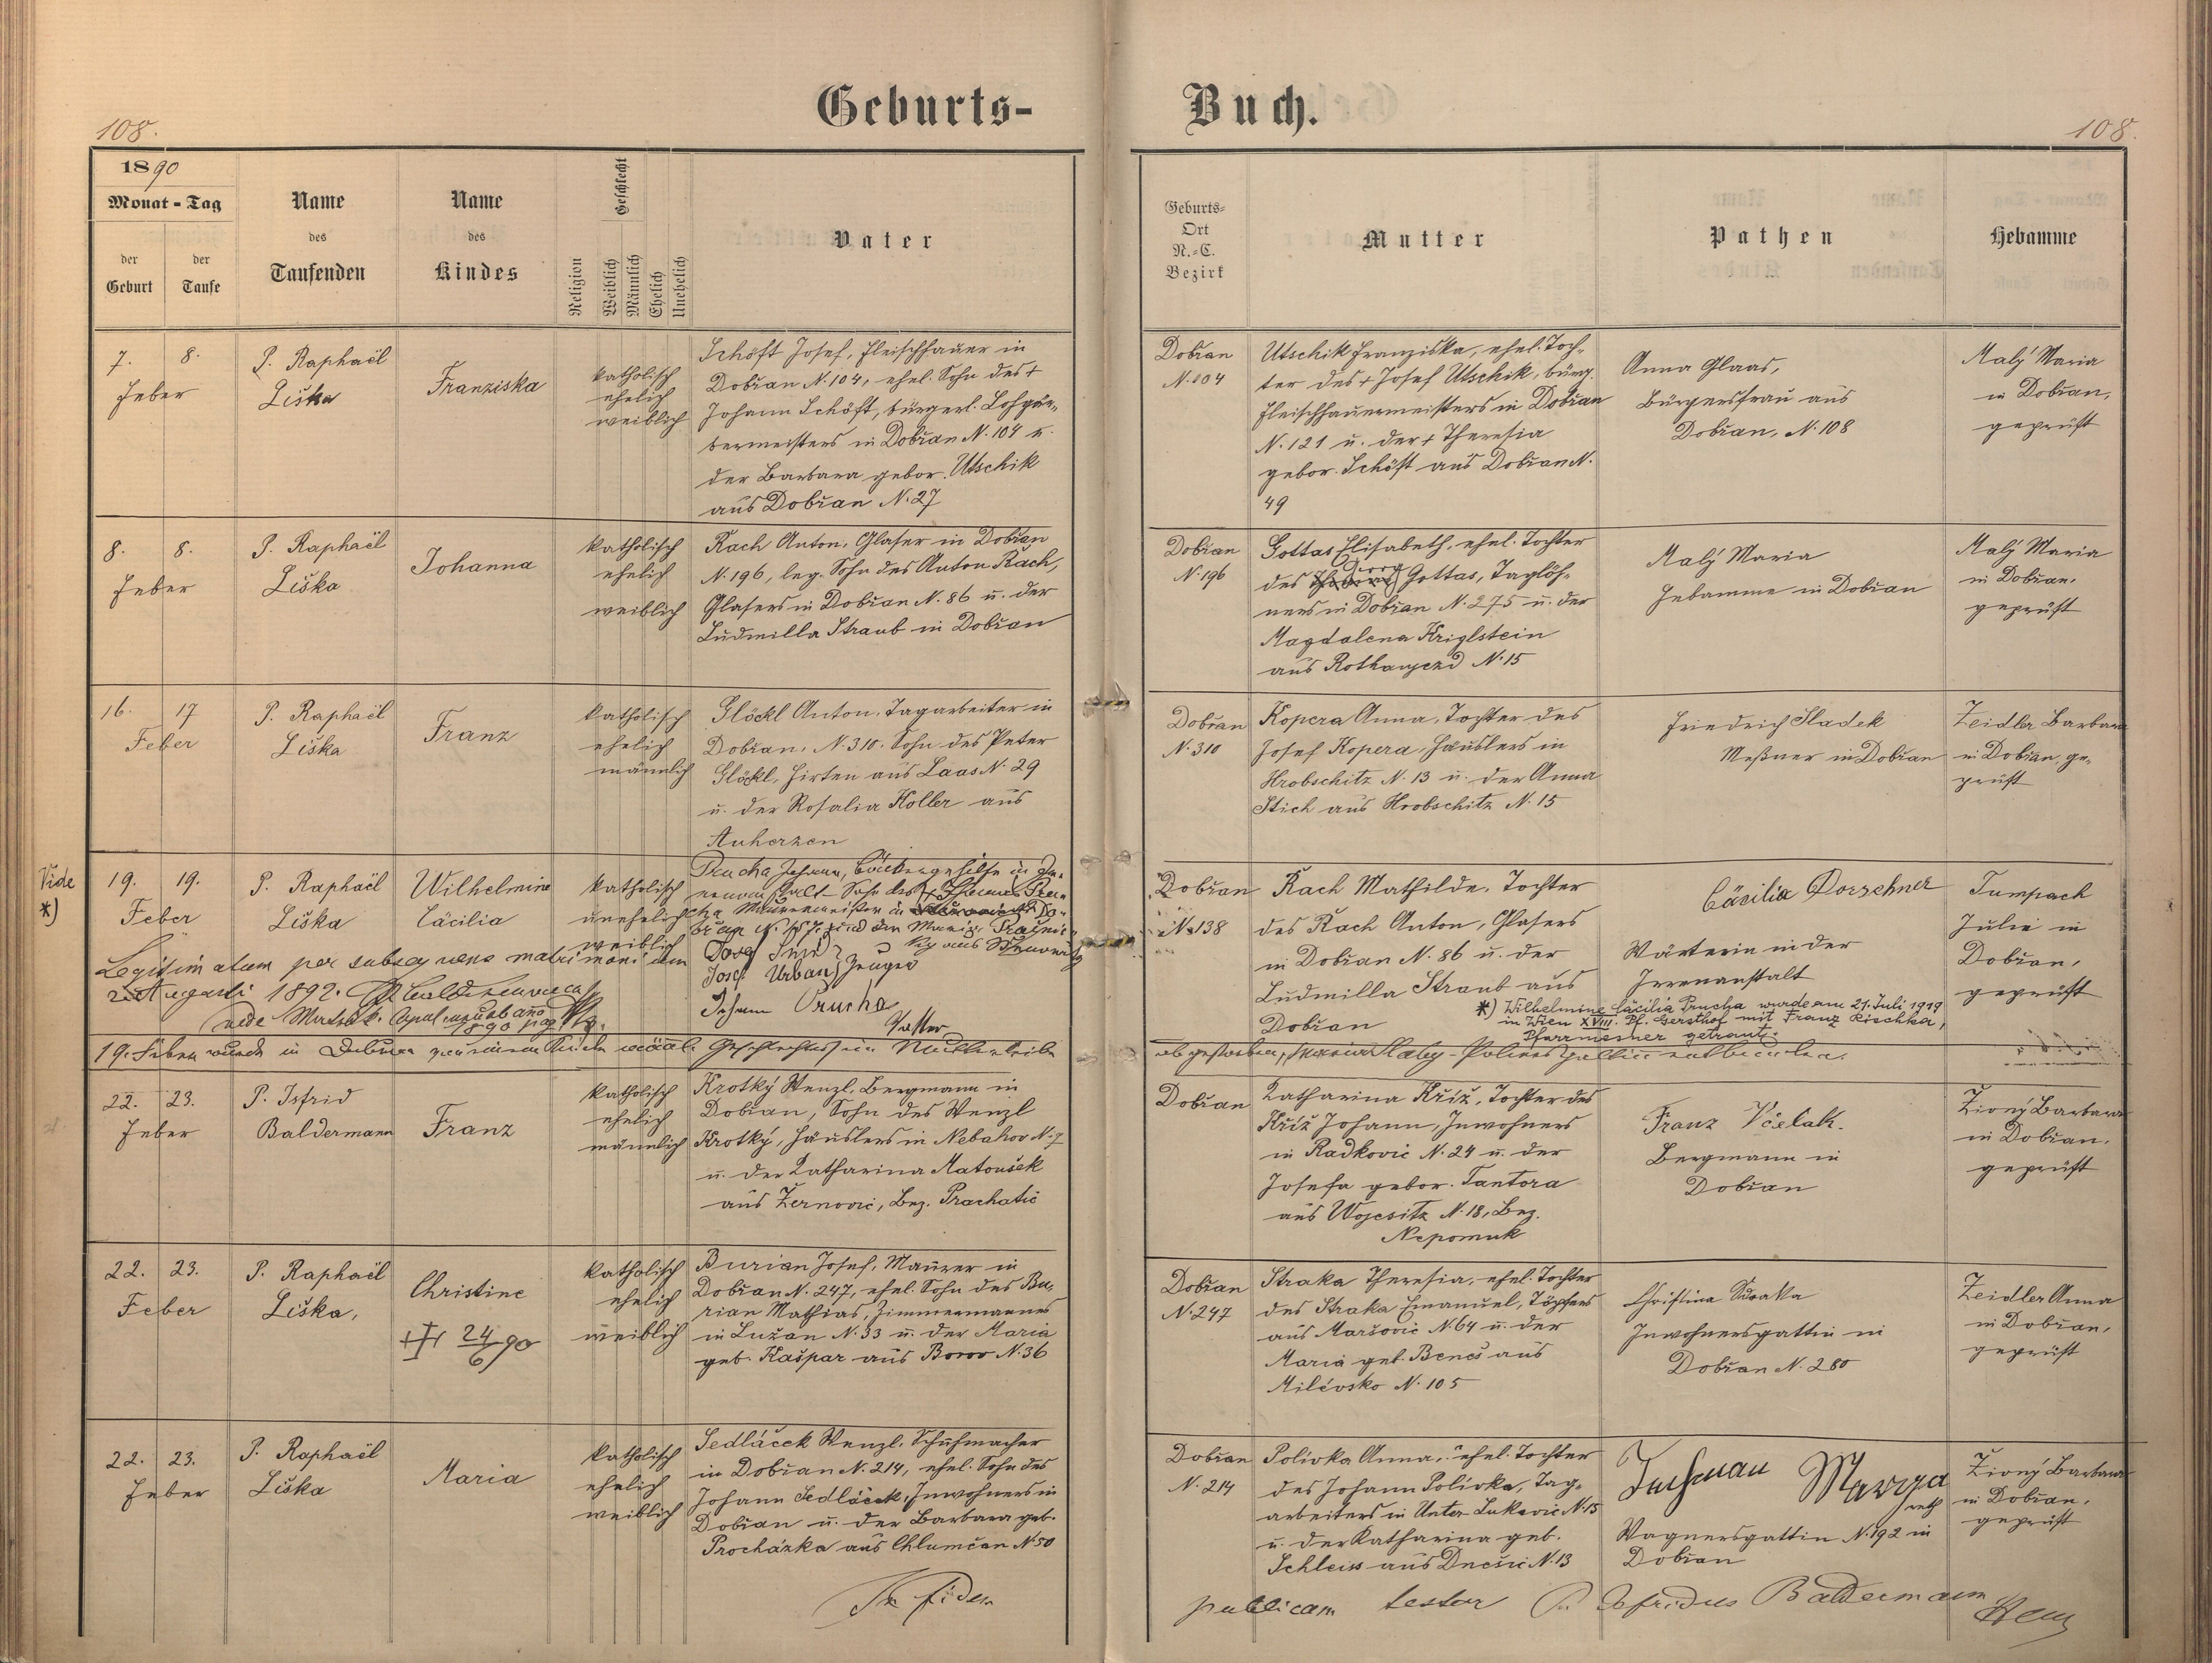 Geburts-
Buch.
108.
108.
1890
Monat - Tag
der Geburt
der Taufe
Name
des
Taufenden
Name
des
Kindes
Religion
Geschlecht
Weiblich
Männlich
Ehelich
Unehelich
Vater
Geburts-
Ort
N.-C.
Bezirk
Mutter
Pathen
Hebamme
7. 8.
Feber
P. Raphaël
Liška
Franziska
katholisch
ehelich
weiblich
Schöft Josef, Fleischhauer in
Dobřan N. 104, ehel. Sohn des +
Johann Schöft, bürgerl. Lohgär-
bermeisters in Dobřan N. 104 u.
der Barbara gebor. Utschik
aus Dobřan N. 27
Dobřan
N. 104
Utschik Franziska, ehel. Toch-
ter des + Josef Utschik, bürg.
Fleischhauermeisters in Dobřan
N. 121 u. der + Theresia
gebor. Schöft aus Dobřan N.
49
Anna Glaas,
Bürgersfrau aus
Dobřan, N. 108
Malý Maria
in Dobřan,
geprüft
8. 8.
Feber
P. Raphaël
Liška
Johanna
katholisch
ehelich
weiblich
Rach Anton, Glaser in Dobřan
N. 196, leg. Sohn des Anton Rach,
Glasers in Dobřan N. 86 u. der
Ludmilla Straub in Dobřan
Dobřan
N. 196
Gottas Elisabeth, ehel. Tochter
des Georg Gottas, Taglöh-
ners in Dobřan N. 275 u. der
Magdalena Kriglstein
aus Rothaujezd N. 15
Malý Maria
Hebamme in Dobřan
Malý Maria
in Dobřan,
geprüft
16. 17
Feber
P. Raphaël
Liška
Franz
katholisch
ehelich
männlich
Glöckl Anton, Tagarbeiter in
Dobřan, N. 310. Sohn des Peter
Glöckl, Hirten aus Laas N. 29
u. der Rosalia Holler aus
Auherzen
Dobřan
N. 310
Kopera Anna, Tochter des
Josef Kopera, Häuslers in
Hrobschitz N. 13 u. der Anna
Stich aus Hrobschitz N. 15
Friedrich Sladek
Meßner in Dobřan
Zeidler Barbara
in Dobřan, ge-
prüft
Vide
*)
19. 19.
Feber
P. Raphaël
Liška
Wilhelmine
Cäcilia
katholisch
unehelich
weiblich
Prucha Johann, Bäckergehilfe in Ir-
renanstalt Sohn des + Thomas Pru-
cha Maurermeister in Do-
břan N. 157 und der Maria
aus
Josef
Josef Urban Zeugen
Johann Prucha
Vatter
Legitimatum per subsequens matrimonium
2. Augusti 1892.
vide Matrik. Copul.
1890 pag
Dobřan
N. 138
Rach Mathilde, Tochter
des Rach Anton, Glasers
in Dobřan N. 86 u. der
Ludmilla Straub aus
Dobřan
Cäcilia Dorschner
Wärterin in der
Irrenanstalt
*) Wilhelmine Cäcilia Prucha wurde am 21. Juli 1919
in Wien XVIII. Pf. Gersthof mit Franz Rischka,
Pfarrmesner getraut.
Tumpach
Julie in
Dobřan,
geprüft
19. Feber wurde in Dobřan von einem Kinde männl. Geschlechtes im Mutterleibe
abgestorben, Maria Slaby - Polierersgattin entbunden.
22. 23.
Feber
P. Isfrid
Baldermann
Franz
katholisch
ehelich
männlich
Krotký Wenzl, Bergmann in
Dobřan, Sohn des Wenzl
Krotký, Häuslers in Nebahov N. 7
u. der Katharina Matoušek
aus Žernovic, Bez. Prachatic
Dobřan
Katharina Kříž, Tochter des
Kříž Johann, Inwohners
in Radkovic N. 24 u. der
Josefa gebor. Tantora
aus Wojesitz N. 18, Bez.
Nepomuk
Franz Včelak.
Bergmann in
Dobřan
Zioný Barbara
in Dobřan,
geprüft
22. 23.
Feber
P. Raphaël
Liška,
Christine
24/6 90
katholisch
ehelich
weiblich
Burian Josef, Maurer in
Dobřan N. 247, ehel. Sohn des Bu-
rian Mathias, Zimmermannes
in Lužan N. 33 u. der Maria
geb. Kašpar aus Borov N. 36
Dobřan
N. 247
Straka Theresia, ehel. Tochter
des Straka Emanuel, Töpfers
aus Maršovic N. 64 u. der
Maria geb. Beneš aus
Milévsko N. 105
Christina Straka
Inwohnersgattin in
Dobřan N. 280
Zeidler Anna
in Dobřan,
geprüft
22. 23.
Feber
P. Raphaël
Liška
Maria
katholisch
ehelich
weiblich
Sedláček Wenzl, Schuhmacher
in Dobřan N. 214, ehel. Sohn des
Johann Sedláček, Inwohners in
Dobřan u. der Barbara geb.
Procházka aus Chlumčan N. 50
Dobřan
N. 214
Polivka Anna, ehel. Tochter
des Johann Polivka, Tag-
arbeiters in Unter Lukavic N. 15
u. der Katharina geb.
Schleiss aus Dnešic N. 13
Wagnersgattin N. 192 in
Dobřan
Zioný Barbara
in Dobřan,
geprüft
In fidem
publicam testor P. Isfridus Baldermann